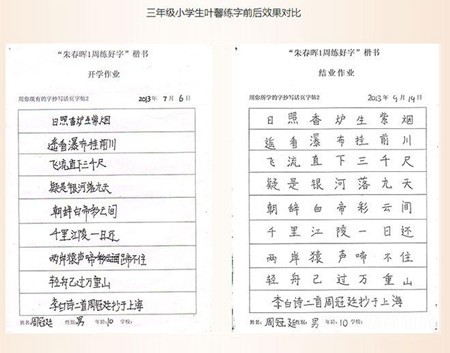 三年级小学生叶馨练字前后效果对比
“朱春晖1周练好字”楷书
开学作业
用你现有的字抄写活页字帖2 2013年7月6日
日照香炉生紫烟
遥看瀑布挂前川
飞流直下三千尺
疑是银河落九天
朝辞白帝彩云间
千里江陵一日还
两岸猿声啼不住
轻舟已过万重山
李白诗二首周冠廷抄于上海
姓名:周冠廷 性别:男 年龄:10 学校:
“朱春晖1周练好字”楷书
结业作业
用你所学的字抄写活页字帖2 2013年9月19日
日照香炉生紫烟
遥看瀑布挂前川
飞流直下三千尺
疑是银河落九天
朝辞白帝彩云间
千里江陵一日还
两岸猿声啼不住
轻舟已过万重山
李白诗二首周冠廷抄于上海
姓名:周冠廷 性别:男 年龄:10 学校: